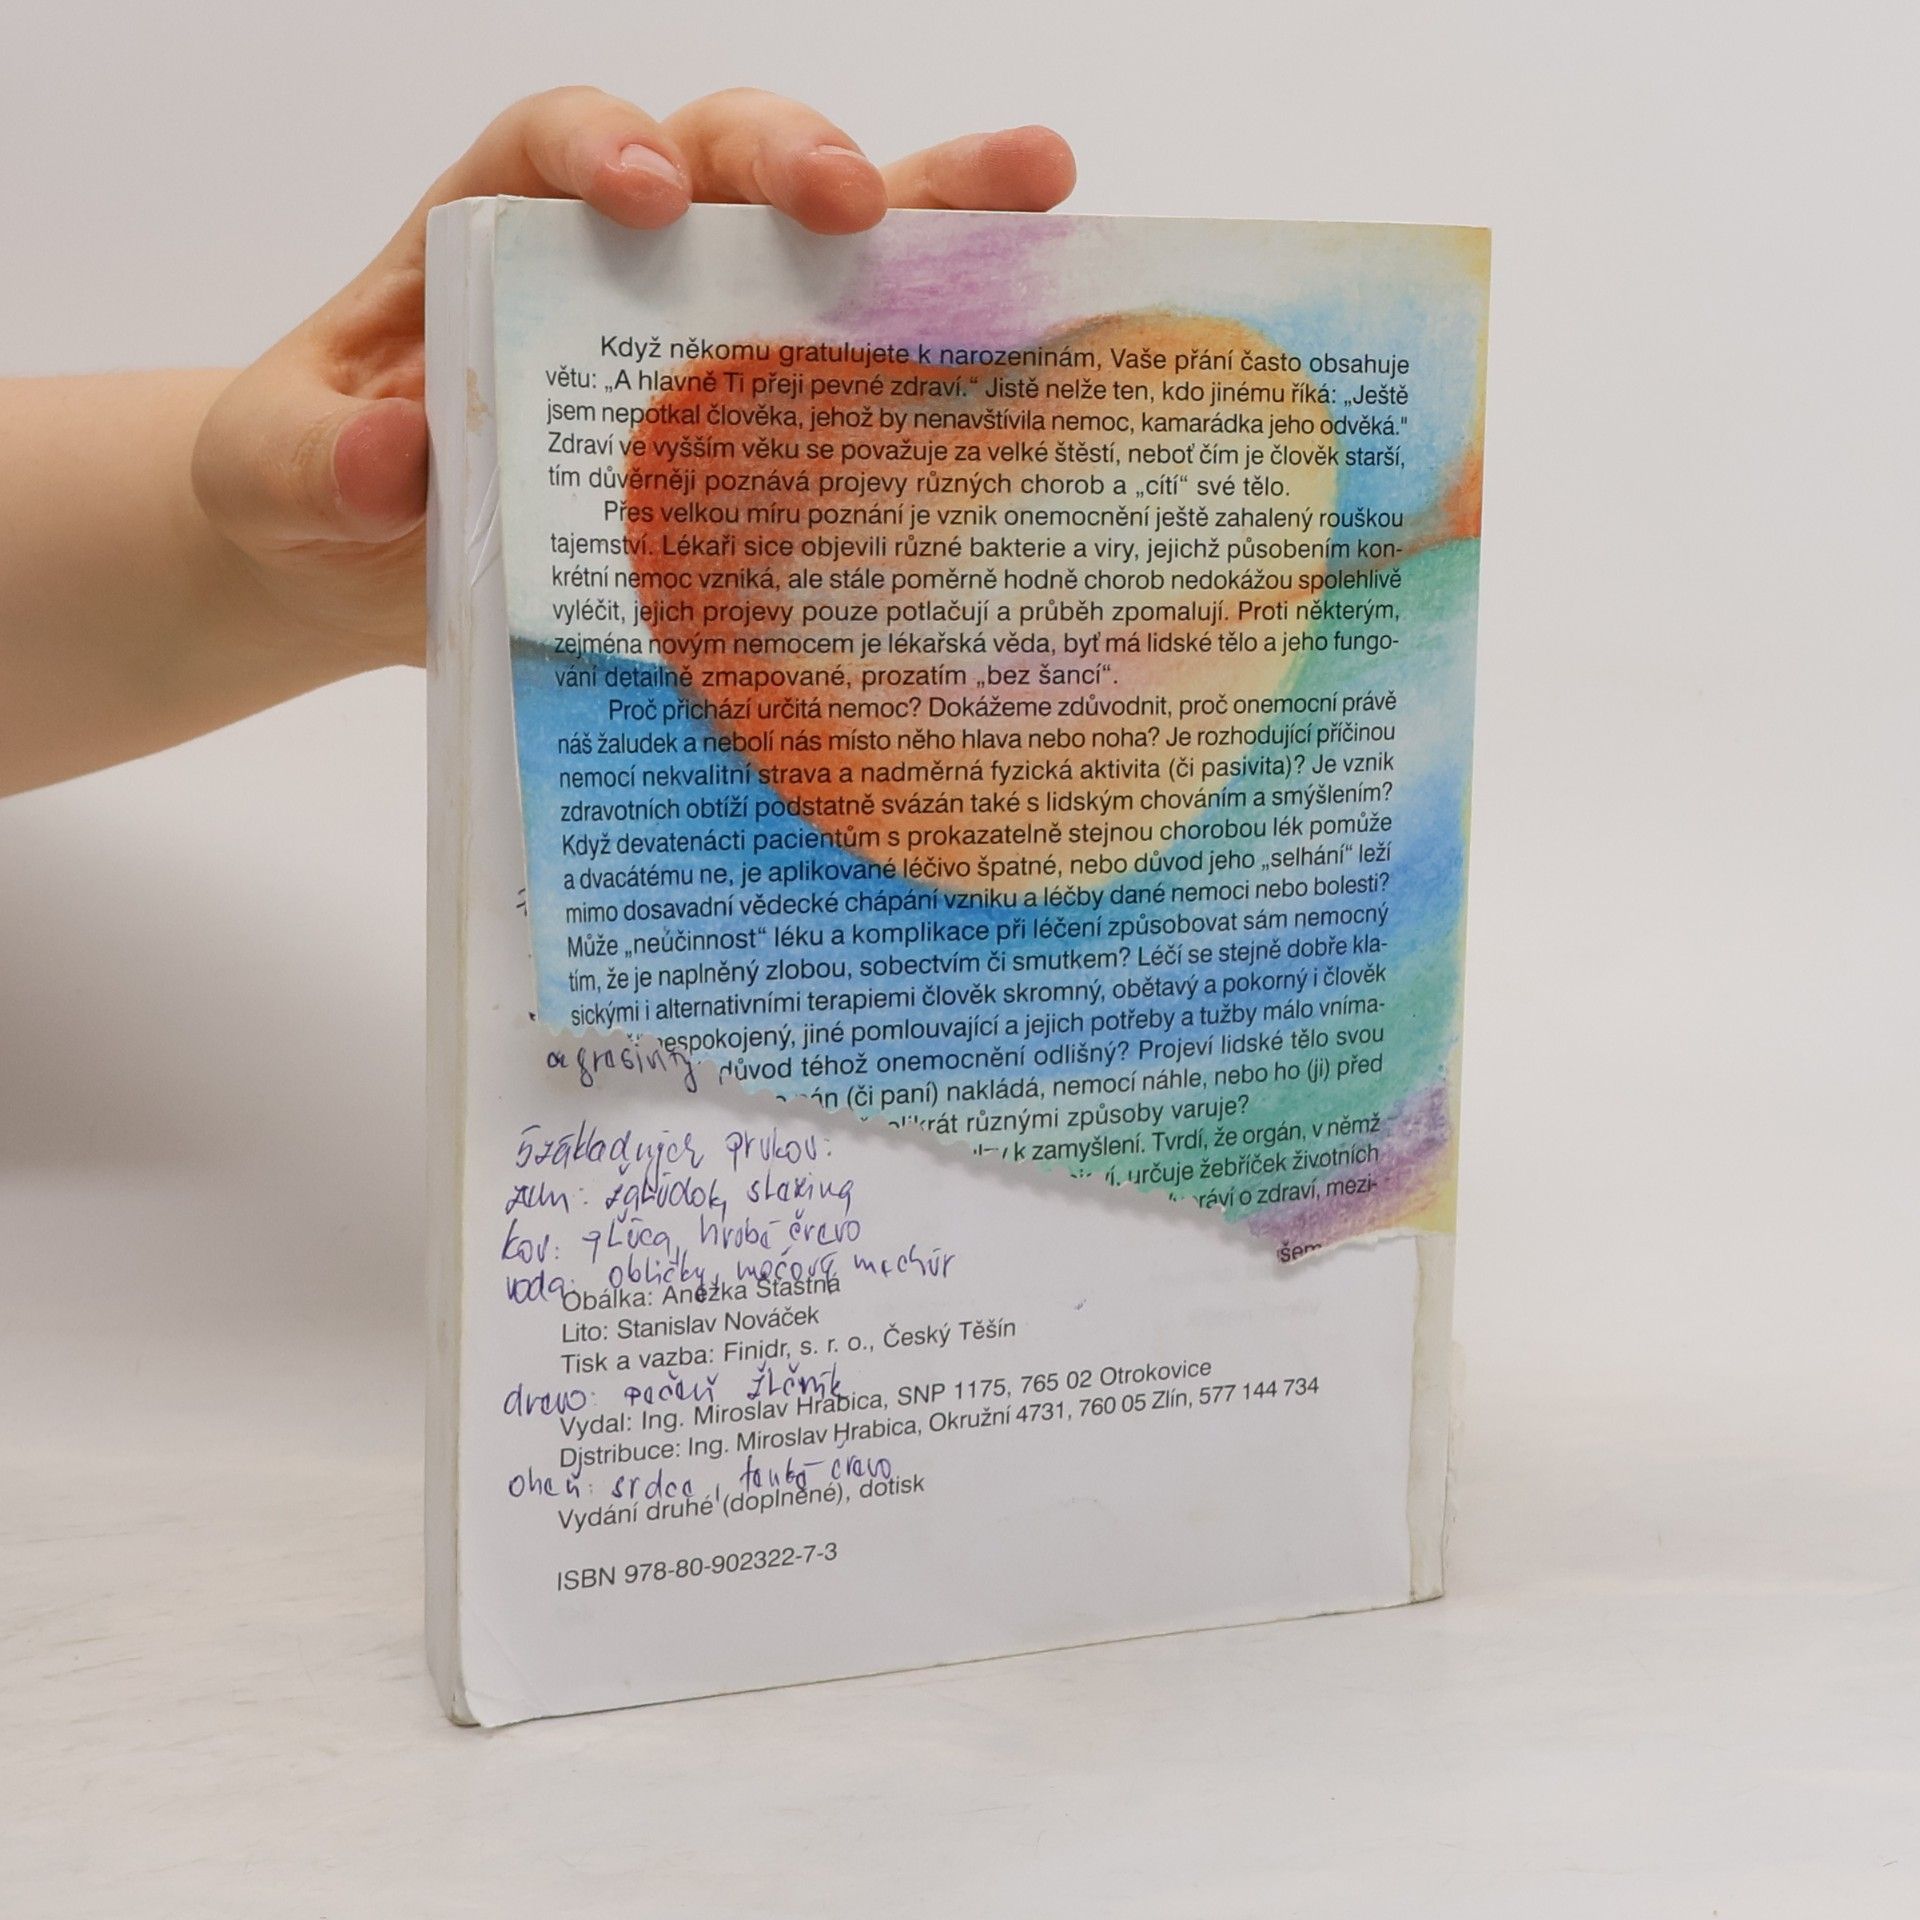 Když někomu gratulujete k narozeninám, Vaše přání často obsahuje
větu: „A hlavně Ti přeji pevné zdraví.“ Jistě nelže ten, kdo jinému říká: „Ještě
jsem nepotkal člověka, jehož by nenavštívila nemoc, kamarádka jeho odvěká."
Zdraví ve vyšším věku se považuje za velké štěstí, neboť čím je člověk starší,
tím důvěrněji poznává projevy různých chorob a „cítí“ své tělo.
Přes velkou míru poznání je vznik onemocnění ještě zahalený rouškou
tajemství. Lékaři sice objevili různé bakterie a viry, jejichž působením kon-
krétní nemoc vzniká, ale stále poměrně hodně chorob nedokážou spolehlivě
vyléčit, jejich projevy pouze potlačují a průběh zpomalují. Proti některým,
zejména novým nemocem je lékařská věda, byť má lidské tělo a jeho fungo-
vání detailně zmapované, prozatím „bez šancí“.
Proč přichází určitá nemoc? Dokážeme zdůvodnit, proč onemocní právě
náš žaludek a nebolí nás místo něho hlava nebo noha? Je rozhodující příčinou
nemocí nekvalitní strava a nadměrná fyzická aktivita (či pasivita)? Je vznik
zdravotních obtíží podstatně svázán také s lidským chováním a smýšlením?
Když devatenácti pacientům s prokazatelně stejnou chorobou lék pomůže
a dvacátému ne, je aplikované léčivo špatné, nebo důvod jeho „selhání“ leží
mimo dosavadní vědecké chápání vzniku a léčby dané nemoci nebo bolesti?
Může „neúčinnost“ léku a komplikace při léčení způsobovat sám nemocný
tím, že je naplněný zlobou, sobectvím či smutkem? Léčí se stejně dobře kla-
sickými i alternativními terapiemi člověk skromný, obětavý a pokorný i člověk
nespokojený, jiné pomlouvající a jejich potřeby a tužby málo vníma-
důvod téhož onemocnění odlišný? Projeví lidské tělo svou
pán (či paní) nakládá, nemocí náhle, nebo ho (ji) před
různými způsoby varuje?
k zamyšlení. Tvrdí, že orgán, v němž
určuje žebříček životních
o zdraví, mezi-
5 základných prvkov:
zem: žalúdok, slezina
kov: pľúca, hrubé črevo
voda: obličky, močový mechúr
Obálka: Anežka Šťastná
Lito: Stanislav Nováček
Tisk a vazba: Finidr, s. r. o., Český Těšín
drevo: pečeň žlčník
Vydal: Ing. Miroslav Hrabica, SNP 1175, 765 02 Otrokovice
Distribuce: Ing. Miroslav Hrabica, Okružní 4731, 760 05 Zlín, 577 144 734
oheň: srdce, tenké črevo
Vydání druhé (doplněné), dotisk
ISBN 978-80-902322-7-3